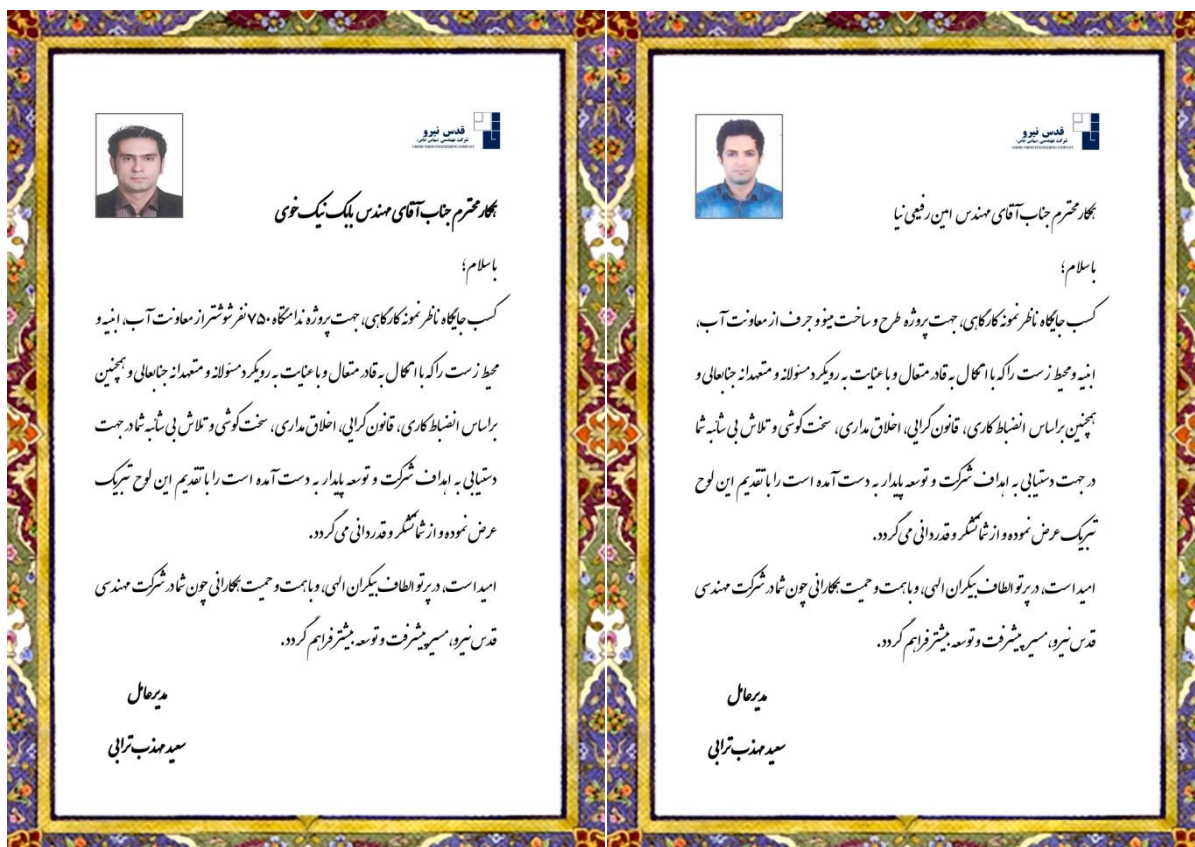 قدس نیرو
شرکت مهندسی (سهامی خاص)
GHODS NIROO ENGINEERING COMPANY
همکار محترم جناب آقای مهندس امین رفیعی نیا
باسلام؛
کسب جایگاه ناظر نمونه کارگاهی، جهت پروژه طرح و ساخت مینو جرف از معاونت آب،
ابنیه و محیط زست را که با اتکال به قادر متعال و با عنایت به رویکرد مسئولانه و متعهدانه جنابعالی و
همچنین براساس انضباط کاری، قانون گرایی، اخلاق مداری، سخت کوشی و تلاش بی شائبه شما
در جهت دستیابی به اهداف شرکت و توسعه پایدار به دست آمده است را با تقدیم این لوح
تبریک عرض نموده و از شما تشکر و قدردانی می گردد.
امید است، در پرتو الطاف بیکران الهی، و با همت و حمیت همکارانی چون شما در شرکت مهندسی
قدس نیرو، مسیر پیشرفت و توسعه بیشتر فراهم گردد.
مدیرعامل
سعید مهذب ترابی
قدس نیرو
شرکت مهندسی (سهامی خاص)
GHODS NIROO ENGINEERING COMPANY
همکار محترم جناب آقای مهندس بابک نیک خوی
باسلام؛
کسب جایگاه ناظر نمونه کارگاهی، جهت پروژه ندامتگاه ۷۵۰ نفر شوشتر از معاونت آب، ابنیه و
محیط زست را که با اتکال به قادر متعال و با عنایت به رویکرد مسئولانه و متعهدانه جنابعالی و همچنین
براساس انضباط کاری، قانون گرایی، اخلاق مداری، سخت کوشی و تلاش بی شائبه شما در جهت
دستیابی به اهداف شرکت و توسعه پایدار به دست آمده است را با تقدیم این لوح تبریک
عرض نموده و از شما تشکر و قدردانی می گردد.
امید است، در پرتو الطاف بیکران الهی، و با همت و حمیت همکارانی چون شما در شرکت مهندسی
قدس نیرو، مسیر پیشرفت و توسعه بیشتر فراهم گردد.
مدیرعامل
سعید مهذب ترابی